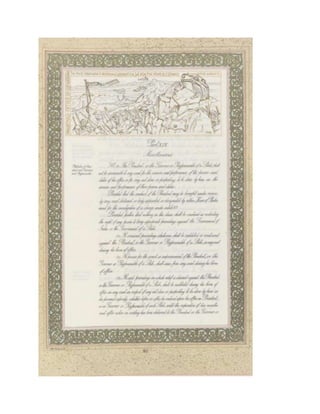 Part XIX
Miscellaneous
361. (1) The President, or the Governor or Rajpramukh of a State, shall
not be answerable to any court for the exercise and performance of the powers and
duties of his office or for any act done or purporting to be done by him in the
exercise and performance of those powers and duties:
Provided that the conduct of the President may be brought under review
by any court, tribunal or body appointed or designated by either House of Parlia-
ment for the investigation of a charge under article 61:
Provided further that nothing in this clause shall be construed as restricting
the right of any person to bring appropriate proceedings against the Government of
India or the Government of a State.
(2) No criminal proceedings whatsoever shall be instituted or continued
against the President, or the Governor or Rajpramukh of a State, in any court
during his term of office.
(3) No process for the arrest or imprisonment of the President, or the
Governor or Rajpramukh of a State, shall issue from any court during his term
of office.
(4) No civil proceedings in which relief is claimed against the President,
or the Governor or Rajpramukh of a State, shall be instituted during his term of
office in any court in respect of any act done or purporting to be done by him in
his personal capacity, whether before or after he entered upon his office as President,
or as Governor or Rajpramukh of such State, until the expiration of two months
next after notice in writing has been delivered to the President or the Governor or